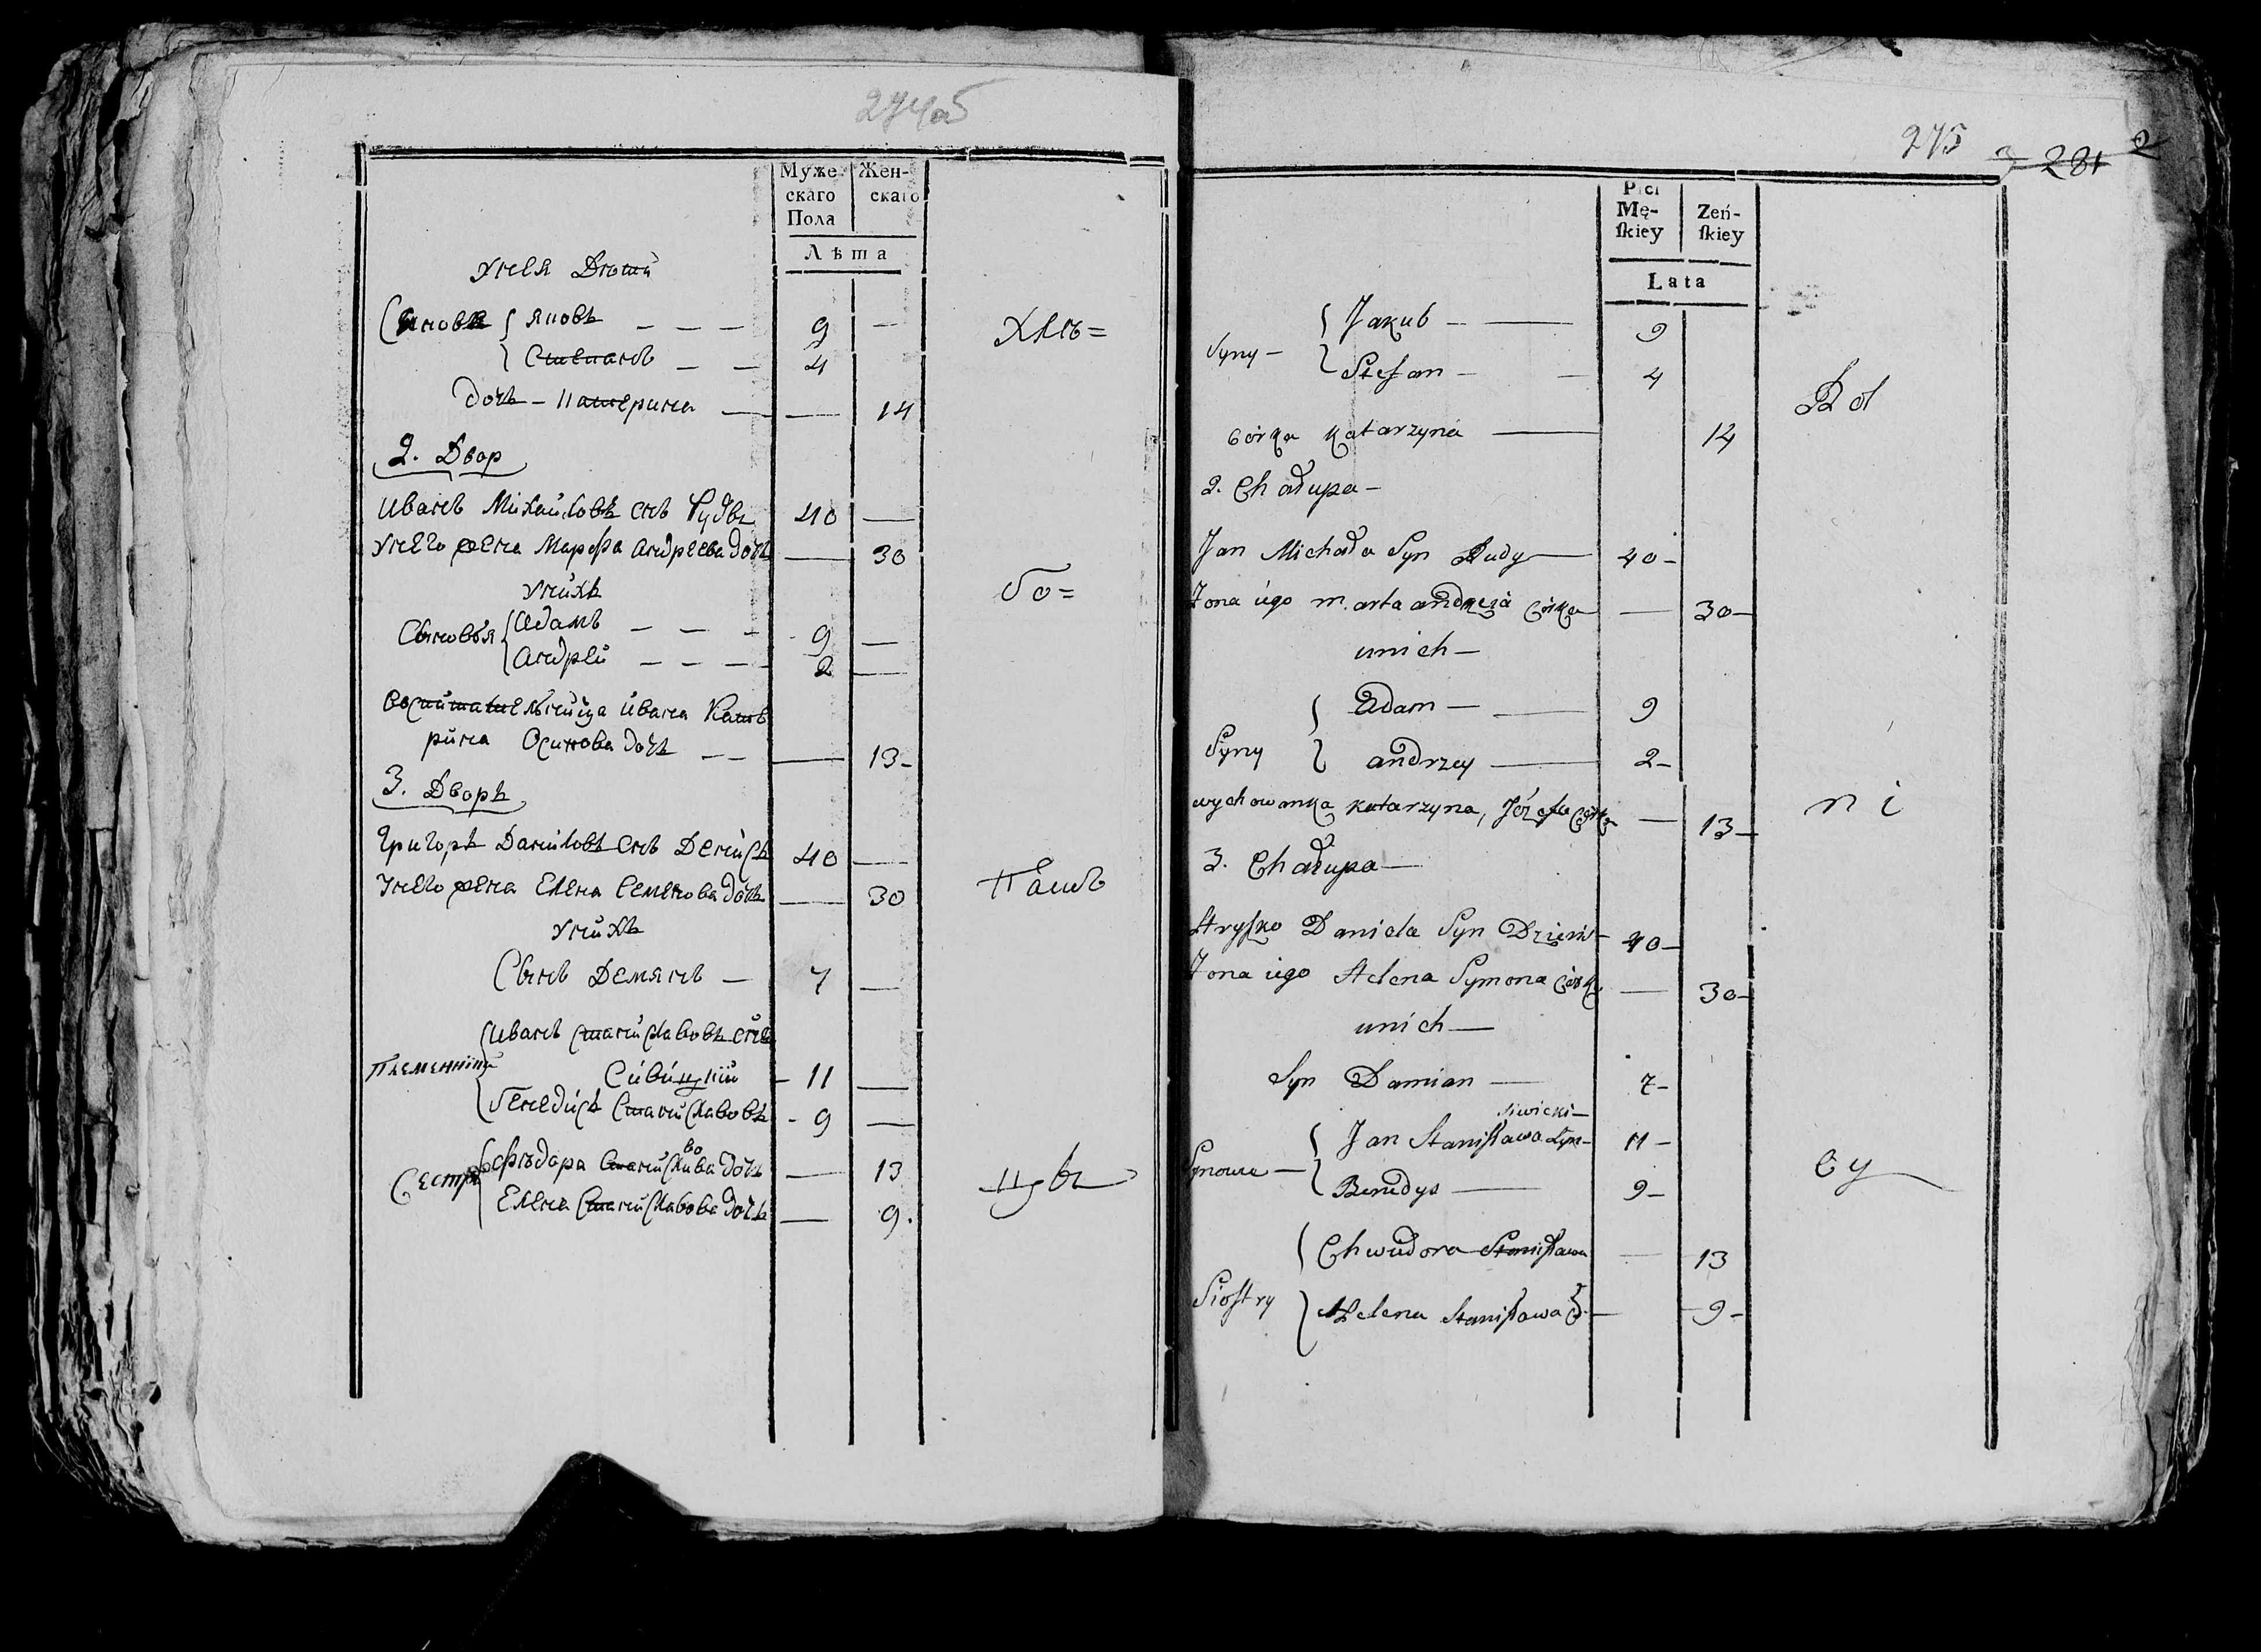 274об
Муже-
скаго
Пола
Жен-
скаго
Лѣта
Унея Дѣти
Сыновя { Яковъ — — — 9 —
{ Степанъ — — 4
Дочь — Катерина — — 14
Хлѣ=
2. Двор
Иванъ Михайловъ снъ Рудъ 40 —
Унего жена Марфа Андреева дочь — 30
Унихъ
Сыновья { Адамъ — — — 9 —
{ Андрей — — — 2 —
бо=
Воспитательница Ивана Кате
рина Осипова дочь — — — 13-
3. Дворъ
Григоръ Даниловъ снъ Денисъ 40 —
Унего жена Елена Семенова дочь — 30
Унихъ
Сынъ Демянъ — 7 —
Племенники { Иванъ Станиславовъ снъ
Сивицкий - 11 —
{ Бенедисъ Станиславовъ - 9 —
Сестры { Фѣдора Станиславова дочь — 13
{ Елена Станиславова дочь — 9.
275 281 2
Płci
Mę-
ſkiey
Zeń-
ſkiey
Lata
Syny — { Jakub — — 9
{ Stefan — — 4
Córka Katarzyna — 14
2. Chałupa —
Jan Michała Syn Rudy — 40 —
Żona iego Marta andrzeia Córka — 30 —
unich —
Syny { Adam — — 9
{ andrzey — 2 —
wychowanka Katarzyna, Józefa Córka — 13 —
n i
3. Chałupa —
Hryſko Daniela Syn Dzieniś — 40 —
Żona iego Helena Symona Córka — 30 —
unich —
Syn Damian — 7 —
Siwicki —
Synowie — { Jan Staniſława Syn — 11 —
{ Benedys — 9 —
Chwiedora Staniſława — 13
Sioſtry { Helena Staniſława C. — 9 —